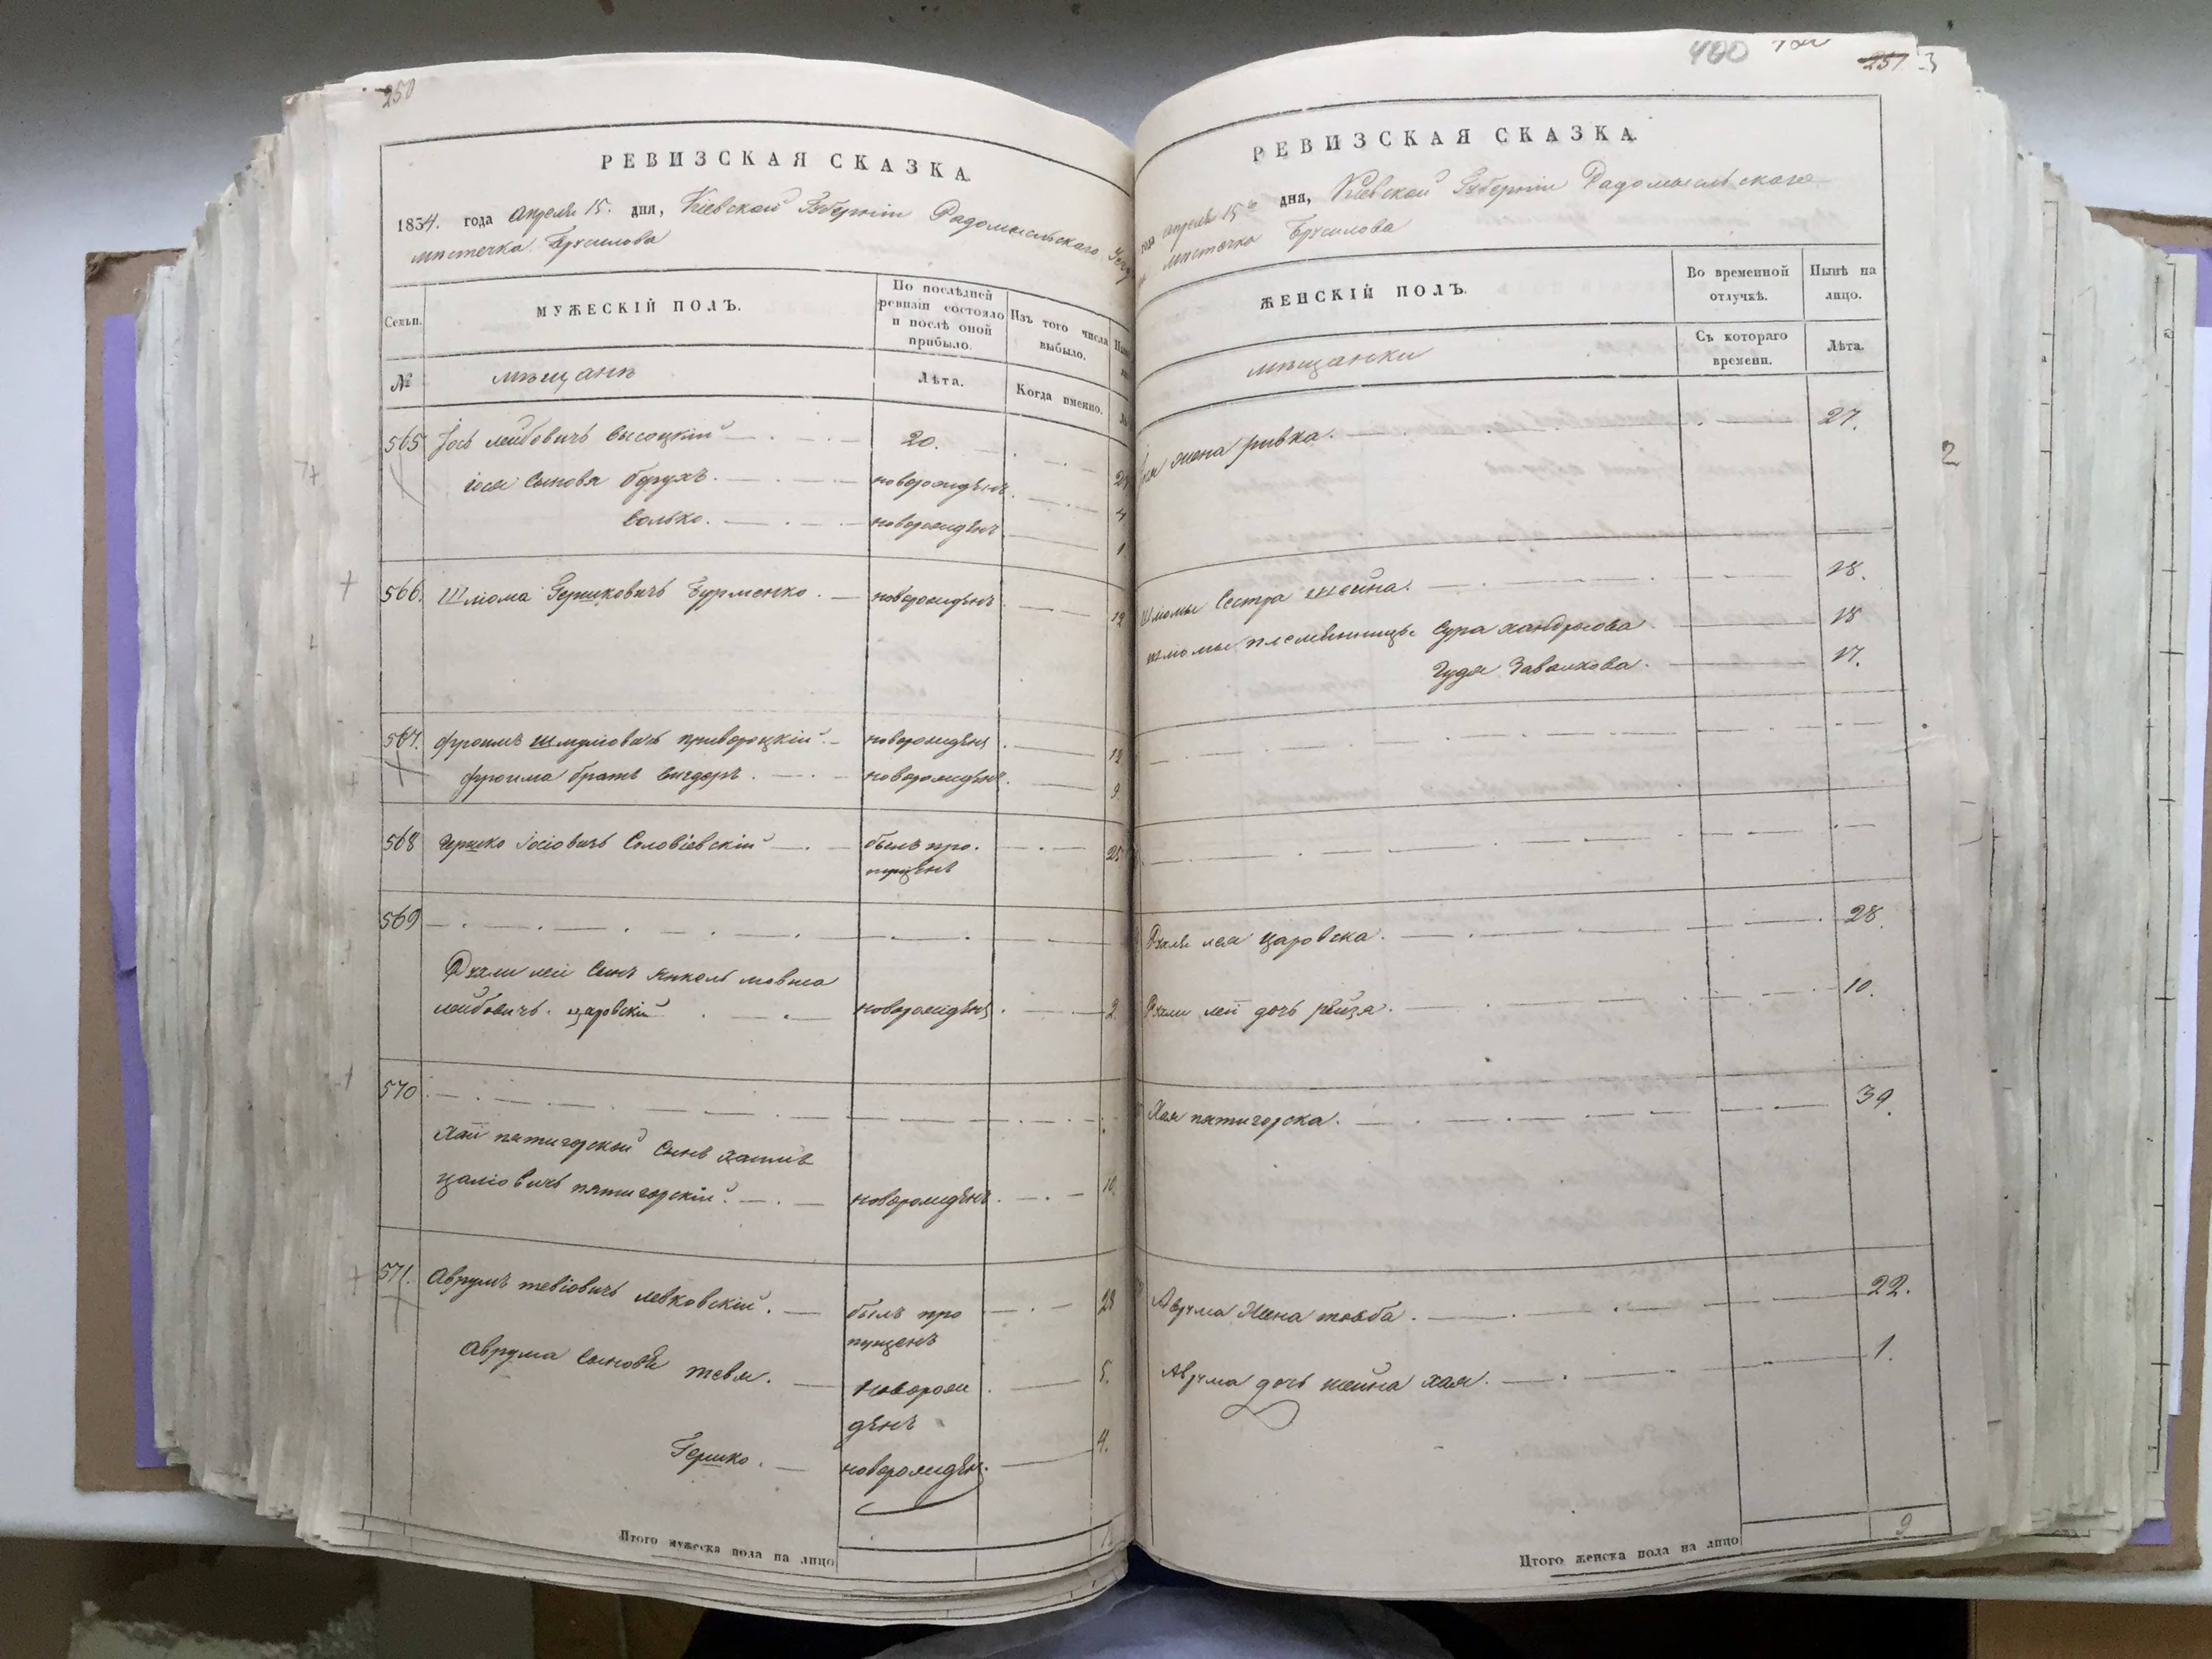 250
РЕВИЗСКАЯ СКАЗКА.
1834. года Апреля 15. дня, Кіевской Губерніи Радомысльскаго
мистечка Брусилова
Семьи.
МУЖЕСКІЙ ПОЛЪ.
По послѣдней
ревизіи состояло
и послѣ оной
прибыло.
Изъ того числа
выбыло.
№
мѣщанѣ
Лѣта.
Когда именно.
565 Іось лейбовичъ высоцкій 20.
іося Сыновя борухъ. новорожденъ. 4
волько. новорожденъ 1
566. Шлома Гершковичъ Бурменко. новорожденъ. 12
567. фроимъ шмуліовичъ привороцкій. новорожденъ. 12
фроима братъ вигдоръ. новорожденъ. 9
568 гершко іосіовичъ Соловіевскій былъ про- 25
пущенъ
569
Рухли леи Сынъ янкель мовша
лейбовичъ. царовскій новорожденъ. 2.
570
Хаи пятигорской Сынъ хаимъ
цаліовичъ пятигорскій. новорожденъ. 10.
571. Аврумъ тевіовичъ левковскій. былъ про
пущенъ
Аврума Сыновя тевя. новорож 5.
денъ
Гершко. новорожден. 4.
Итого мужеска пола на лицо
400
251 3
РЕВИЗСКАЯ СКАЗКА.
года апреля 15 дня, Кіевской Губерніи Радомысльскаго
мистечка Брусилова
ЖЕНСКІЙ ПОЛЪ.
Во временной
отлучкѣ.
Нынѣ на
лицо.
мѣщанки
Съ котораго
времени.
Лѣта.
жена ривка. 27.
2
Шломы Сестра шейна. 18.
шломы племянницы Сура 18
17.
Рухля лея царовска. 28.
Рухли леи дочь рейзя. 10.
Хая пятигорска. 39.
Аврума Жена товба. 22.
Аврума дочь шейна хая. 1.
Итого женска пола на лицо 9